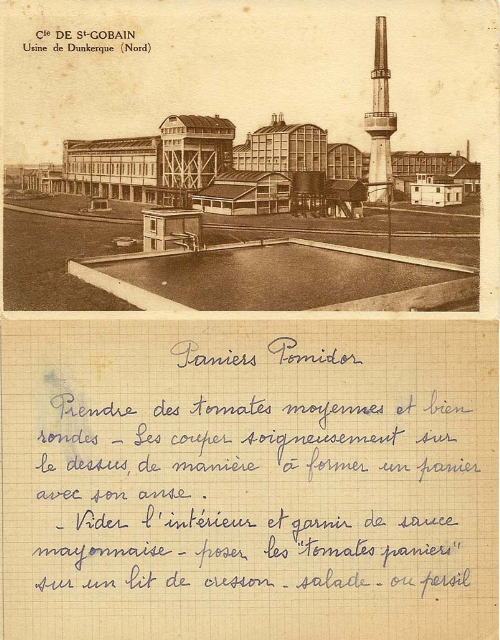 Cie DE St-GOBAIN
Usine de Dunkerque (Nord)
Paniers Pomidor
Prendre des tomates moyennes et bien
rondes - Les couper soigneusement sur
le dessus, de manière à former un panier
avec son anse.
- Vider l'intérieur et garnir de sauce
mayonnaise - poser les "tomates paniers"
sur un lit de cresson - salade - ou persil